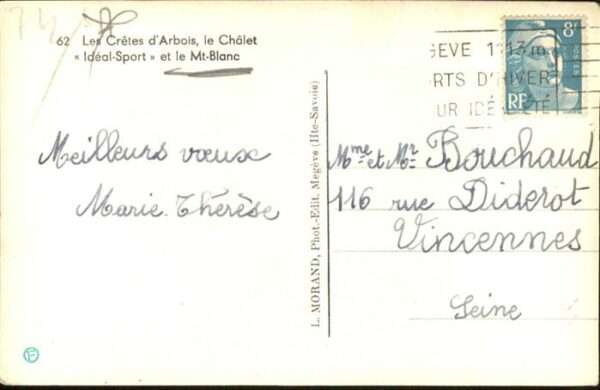 62 Les Crêtes d'Arbois, le Châlet
« Idéal-Sport » et le Mt-Blanc
Meilleurs vœux
Marie-Thérèse
L. MORAND, Phot.-Edit. Megève (Hte-Savoie)
8F
RF
GEVE 1
13
RTS D'HIVER
UR IDÉ
ÉTÉ
Mme et Mr Bouchaud
116 rue Diderot
Vincennes
Seine